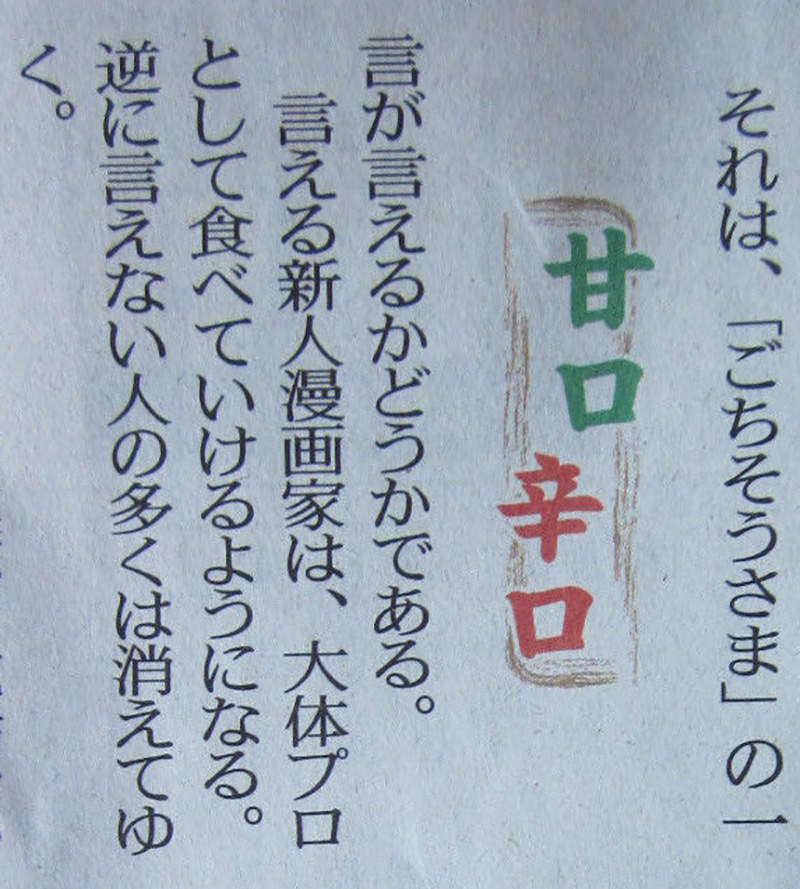 それは、「ごちそうさま」の一
甘口
辛口
言が言えるかどうかである。
言える新人漫画家は、大体プロ
として食べていけるようになる。
逆に言えない人の多くは消えてゆ
く。